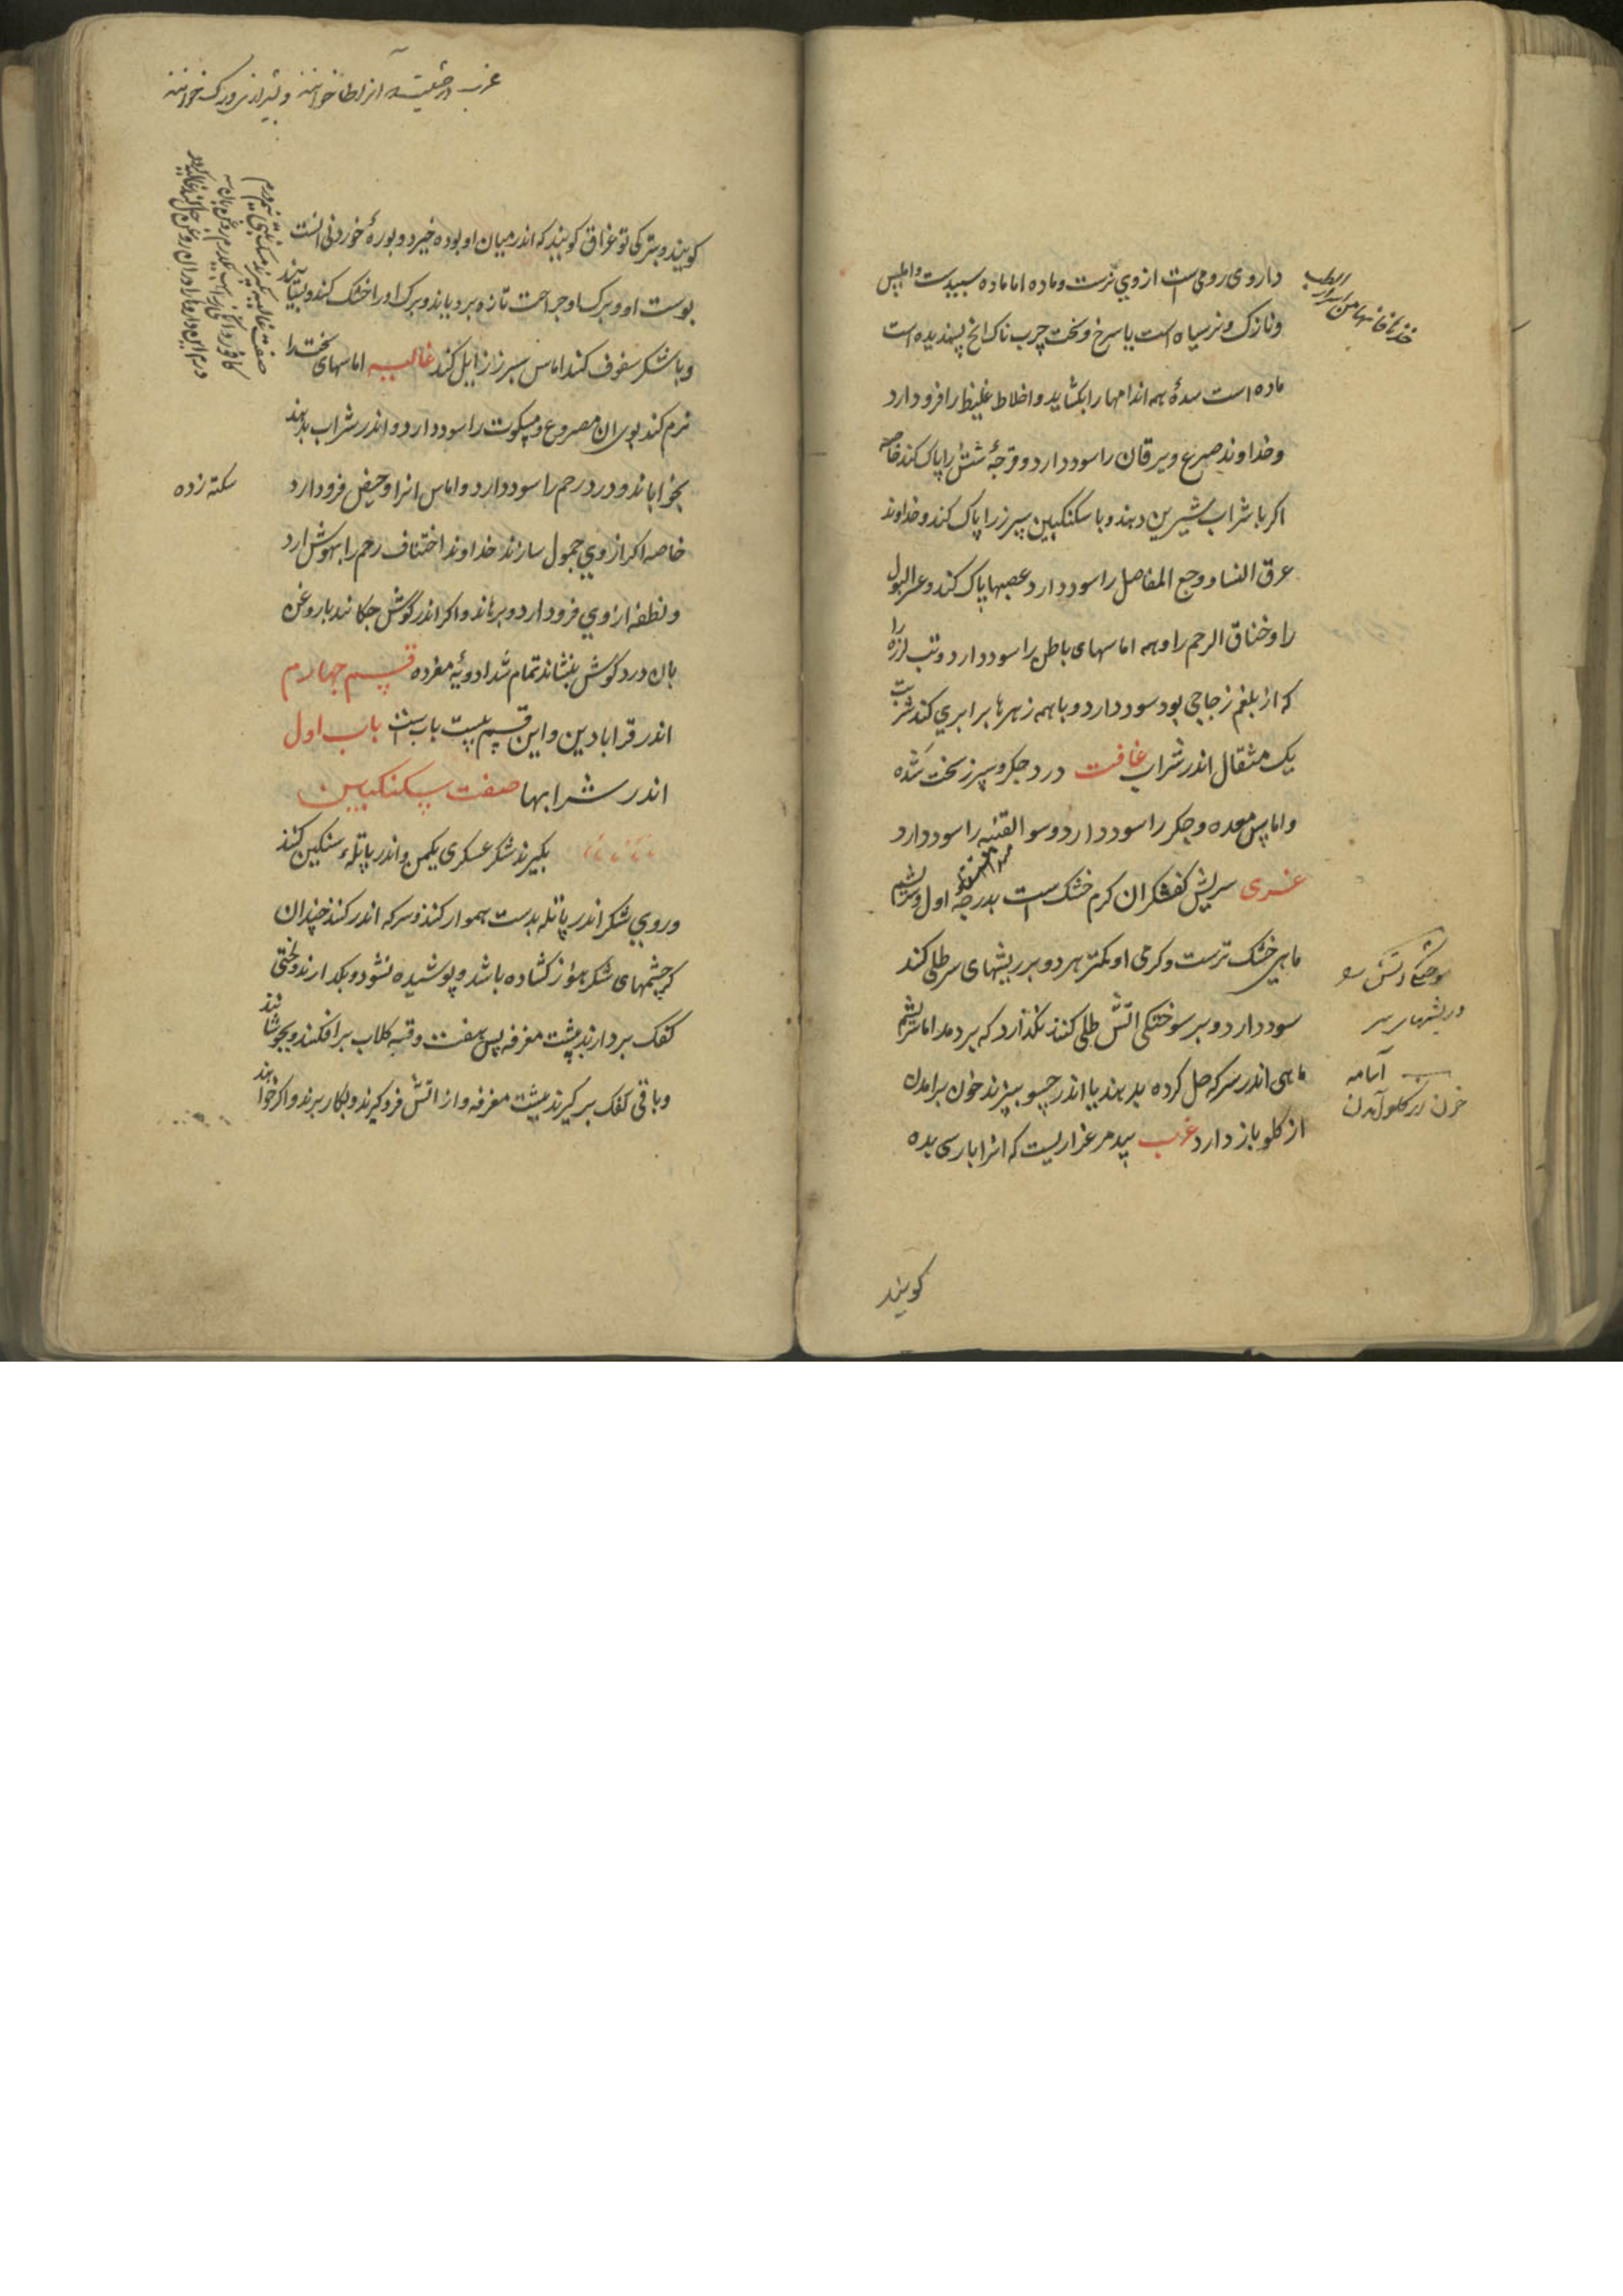 داروی رومی است ازوی نرست و ماده اما ماده سپیدست و املس
و نازک و نر سیاه است یا سرخ و سخت چرب ناک انچ پسندیده است
ماده است سدهٔ همه اندامها را بکشاید و اخلاط غلیظ را فرود ارد
و خداوند صرع و یرقان را سود دارد و قرحهٔ شش را پاک کند خاصه
اکر با شراب شیرین دهند و با سکنکبین سپرز را پاک کند و خداوند
عرق النسا و وجع المفاصل را سود دارد عصبها پاک کند و عسر البول
را و خناق الرحم را و همه اماسهای باطن را سود دارد و تب لرزه را
که از بلغم زجاجی بود سود دارد و با همه زهرها برابری کند شربت
یک مثقال اندر شراب غافت درد جکر و سپرز سخت شده
و اماس معده و جکر را سود دارد و سو القنیه را سود دارد
غری سریش کفشکران کرم خشک است بدرجهٔ اول و سریشم
ماهی خشک ترست و کرمی او کمتر هر دو بر ریشهای سر طلی کند
سود دارد و بر سوختکی اتش طلی کنند نکذارد که بردمد اما سریشم
ماهی اندر سرکه حل کرده بدهند یا اندر حسو بپزند خون برامدن
از کلو باز دارد غرب پید مرغزاریست که انرا بارسی بده
سوختکی اتش
و ریشهای سر
آسامه
خون از کلو آمدن
کویند
کویند و بترکی توغراق کویند که اندر میان او بوده خیزد و بورهٔ خوردنی انست
پوست او و برک او جراحت تازه برویاند و برک او را خشک کنند و بسایند
و با شکر سفوف کند اماس سپرز زایل کند غالیه اماسهای سخت را
نرم کند بوی ان مصروع و مسکوت را سود دارد و اندر شراب بدهند
بخواباند و درد رحم را سود دارد و اماس انرا و حیض فرود ارد
خاصه اکر از وی حمول سازند خداوند اختناق رحم را بهوش ارد
و نطفه از وی فرود ارد و برهاند و اکر اندر کوش چکانند با روغن
بان درد کوش بنشاند تمام شد ادویهٔ مفرده قسم چهارم
اندر قرابادین و این قسم بیست باب است باب اول
اندر شرابها صفت سکنکبین
بکیرند شکر عسکری یکمن و اندر پاتلهٔ سنکین کنند
و روی شکر اندر پاتله بدست هموار کنند و سرکه اندر کنند چندان
که چشمهای شکر هنوز کشاده باشد و پوشیده نشود و بکدارند و لختی
کفک بردارند بپشت مغرفه پس هفت وقیه کلاب برافکنند و بجوشانند
و باقی کفک برکیرند بپشت مغرفه و از اتش فرو کیرند و بکار برند و اکر خواهند
سکته زده